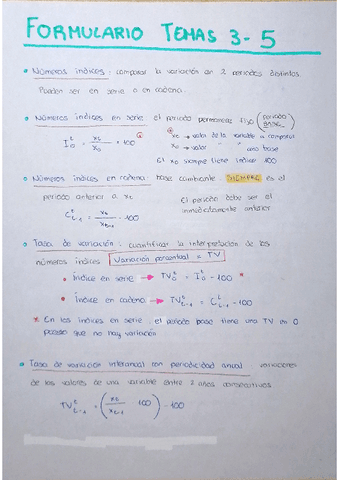 FORMULARIO TEMAS 3-5
• Números índices: comparar la variación en 2 periodos distintos.
Pueden ser en serie o en cadena.
• Números índices en serie el periodo permanece fijo (periodo base)
I₀ᵗ = xt / x₀ · 100
xt → valor de la variable a comparar
x₀ → valor " " año base
El x₀ siempre tiene índice 100
• Números índices en cadena base cambiante. SIEMPRE es el
periodo anterior a xt
El periodo debe ser el
inmediatamente anterior
Cᵗt-1 = xt / xt-1 · 100
• Tasa de variación: cuantificar la interpretación de los
números índices Variación porcentual = TV
• Índice en serie → TV₀ᵗ = I₀ᵗ - 100 *
• Índice en cadena → TVᵗt-1 = Cᵗt-1 - 100
* En los índices en serie, el periodo base tiene una TV 0
puesto que no hay variación
• Tasa de variación interanual con periodicidad anual variaciones
de los valores de una variable entre 2 años consecutivos
TVᵗt-1 = (xt / xt-1 · 100) - 100